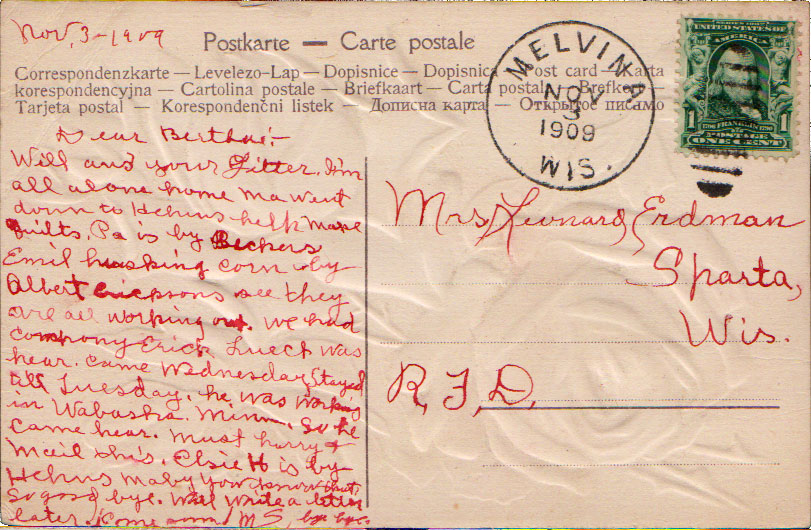 Nov, 3-1909
Postkarte — Carte postale
Correspondenzkarte — Levelezo-Lap — Dopisnice — Dopisnica — Post card — Karta
korespondencyjna — Cartolina postale — Briefkaart — Carta postal — Brefkort —
Tarjeta postal — Korespondenčni listek — Дописна карта — Открытое писмо
MELVINA
NOV
3
1909
WIS.
UNITED STATES OF
AMERICA
1 FRANKLIN 1
POSTAGE
ONE CENT
Dear Bertha:-
Will ans your Letter. I'm
all alone home Ma went
down to Hehns help make
quilts, Pa is by Beckers
Emil husking corn by
Albert Ericksons see they
are all working out. We had
company Erick Luech was
hear. Came Wednesday Stayed
till Tuesday. he was working
in Wabasha. Minn. So he
came hear. Must hurry &
Mail this. Elsie H is by
Hehns maby you know that,
So good bye. Will write a letter
later. Come soon M S, by bye.
Mrs, Leonard Erdman
Sparta,
Wis.
R, F, D,